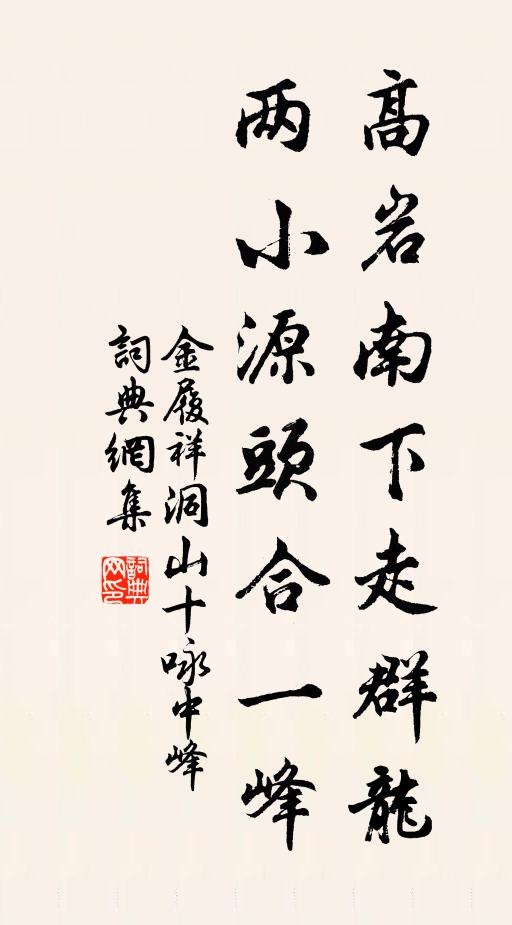 高岩南下走群龍
两小源頭合一峰
金履祥洞山十咏中峰
詞典網集
詞典网印